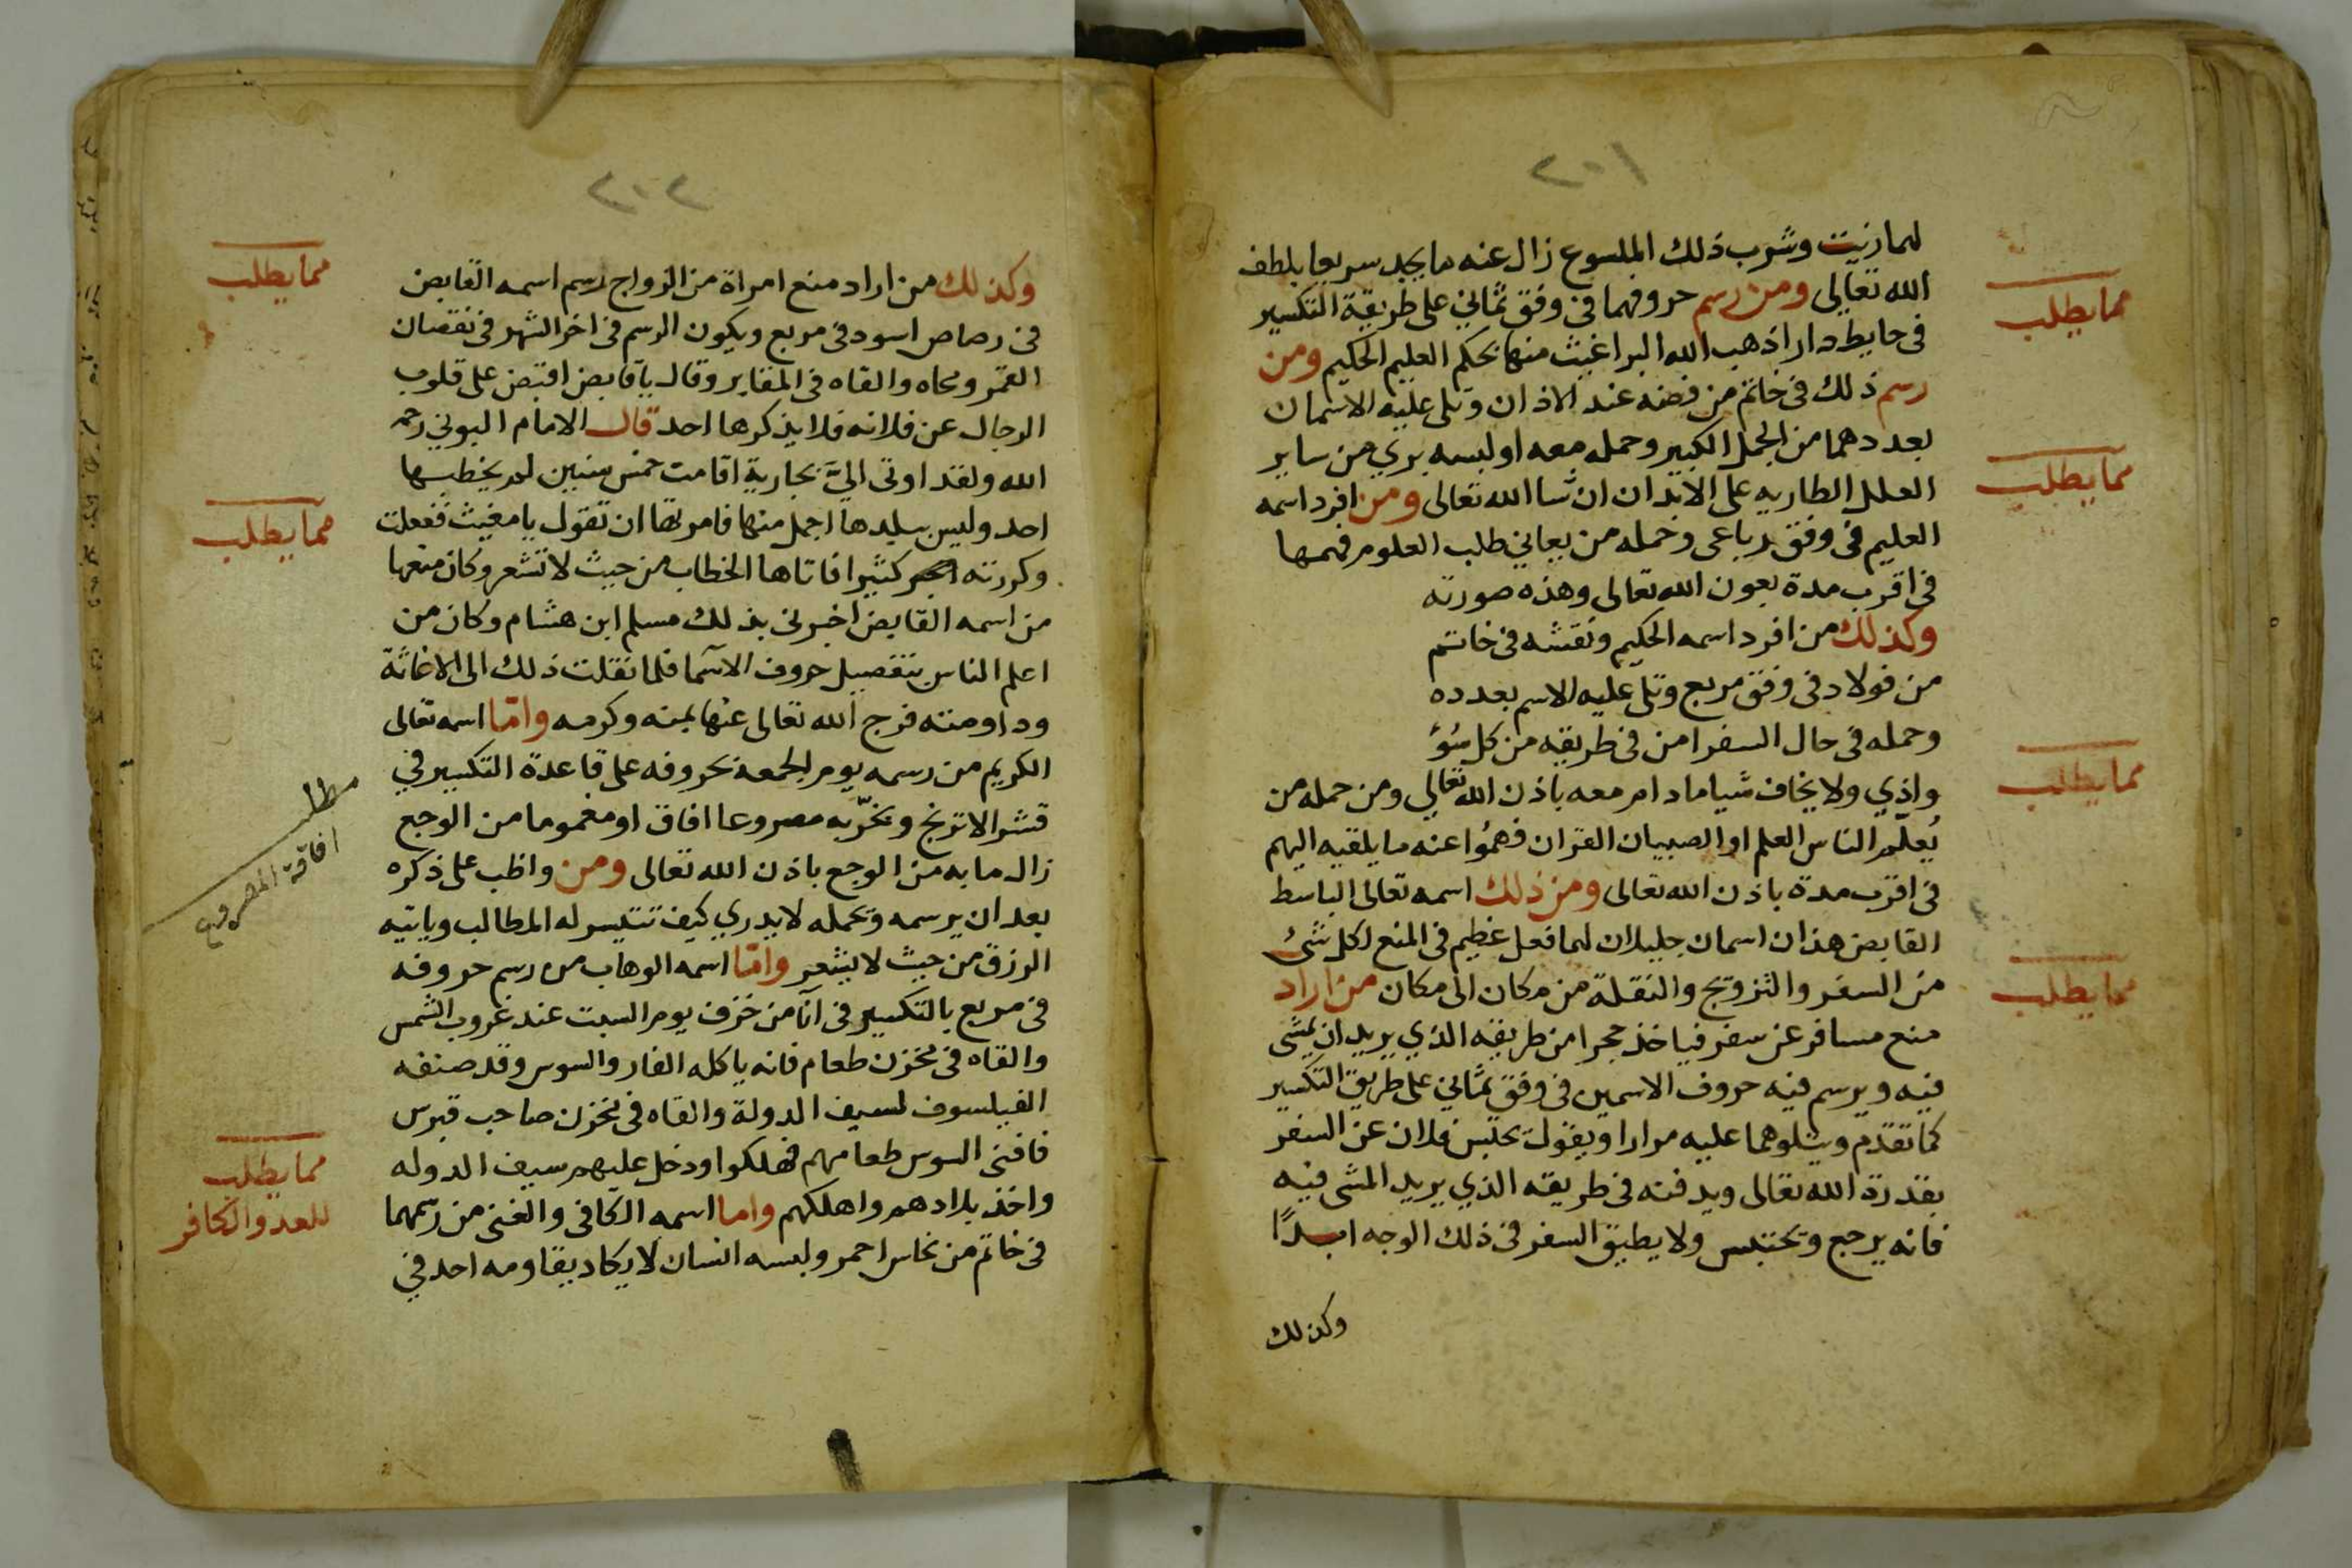 ٢٠١
لها رنيت وشرب ذلك الملسوع زال عنه ما يجد سريعا بلطف
الله تعالى ومن رسم حروفهما فى وفق ثماني على طريقة التكسير
مما يطلب
فى حايط دار اذهب الله البراغيث منها بحكم العليم الحكيم ومن
رسم ذلك فى خاتم من فضه عند الاذان وتلى عليه الاسمان
بعددهما من الجمل الكبير وحمله معه او لبسه بري من ساير
مما يطلب
العلل الطاريه على الابدان ان شا الله تعالى ومن افرد اسمه
العليم فى وفق رباعى وحمله من يعاني طلب العلوم فهمها
فى اقرب مدة بعون الله تعالى وهذه صورته
وكذلك من افرد اسمه الحكيم ونقشه فى خاتم
من فولاد فى وفق مربع وتلى عليه الاسم بعدده
وحمله فى حال السفر امن فى طريقه من كل سُوء
مما يطلب
واذي ولا يخاف شيا ما دام معه باذن الله تعالي ومن حمله من
يُعلّم الناس العلم او الصبيان القران فهمُوا عنه ما يلقيه اليهم
فى اقرب مدة باذن الله تعالى ومن ذلك اسمه تعالى الباسط
القابض هذان اسمان جليلان لهما فعل عظيم فى المنع لكل شئ
من السفر والتزويج والنقلة من مكان الى مكان من اراد
مما يطلب
منع مسافر عن سفر فياخذ حجرا من طريقه الذي يريد ان يمشى
فيه ويرسم فيه حروف الاسمين فى وفق ثماني على طريق التكسير
كما تقدم ويتلوهما عليه مرارا ويقول يحتبس فلان عن السفر
بقدرة الله تعالى ويدفنه فى طريقه الذي يريد المشى فيه
فانه يرجع ويحتبس ولا يطيق السفر فى ذلك الوجه ابدًا
وكذلك
٢٠٢
وكذلك من اراد منع امراة من الزواج رسم اسمه القابض
مما يطلب
فى رصاص اسود فى مربع ويكون الرسم فى اخر الشهر فى نقصان
القمر ومحاه والقاه فى المقابر وقال يا قابض اقبض على قلوب
الرجال عن فلانه فلا يذكرها احد قال الامام البوني رحمه
الله ولقد اوتى اليَّ بجارية اقامت خمس سنين لم يخطبها
احد وليس ببلدها اجمل منها فامرتها ان تقول يا مغيث ففعلت
مما يطلب
وكررته كثيرا فاتاها الخطاب من حيث لا تشعر وكان منعها
من اسمه القابض اخبرنى بذلك مسلم ابن هشام وكان من
اعلم الناس بتفصيل حروف الاسما فلما نقلت ذلك الى الاغاثة
وداومته فرج الله تعالى عنها بمنه وكرمه وامّا اسمه تعالى
الكريم من رسمه يوم الجمعة بحروفه على قاعدة التكسير في
قشر الاترنج وبخّر به مصروعا افاق او مغموما من الوجع
مطلب
افاقة المصروع
زال ما به من الوجع باذن الله تعالى ومن واظب على ذكره
بعد ان يرسمه ويحمله لا يدري كيف تتيسر له المطالب وياتيه
الرزق من حيث لا يشعر وامّا اسمه الوهاب من رسم حروفه
فى مربع بالتكسير فى آنا من خزف يوم السبت عند غروب الشمس
والقاه فى مخزن طعام فانه ياكله الفار والسوس وقد صنفه
الفيلسوف لسيف الدولة والقاه فى مخزن صاحب قبرس
فافنى السوس طعامهم فهلكوا ودخل عليهم سيف الدوله
مما يطلب
للعدو الكافر
واخذ بلادهم واهلكهم واما اسمه الكافى والغنى من رسمهما
فى خاتم من نحاس احمر ولبسه انسان لا يكاد يقاومه احد في